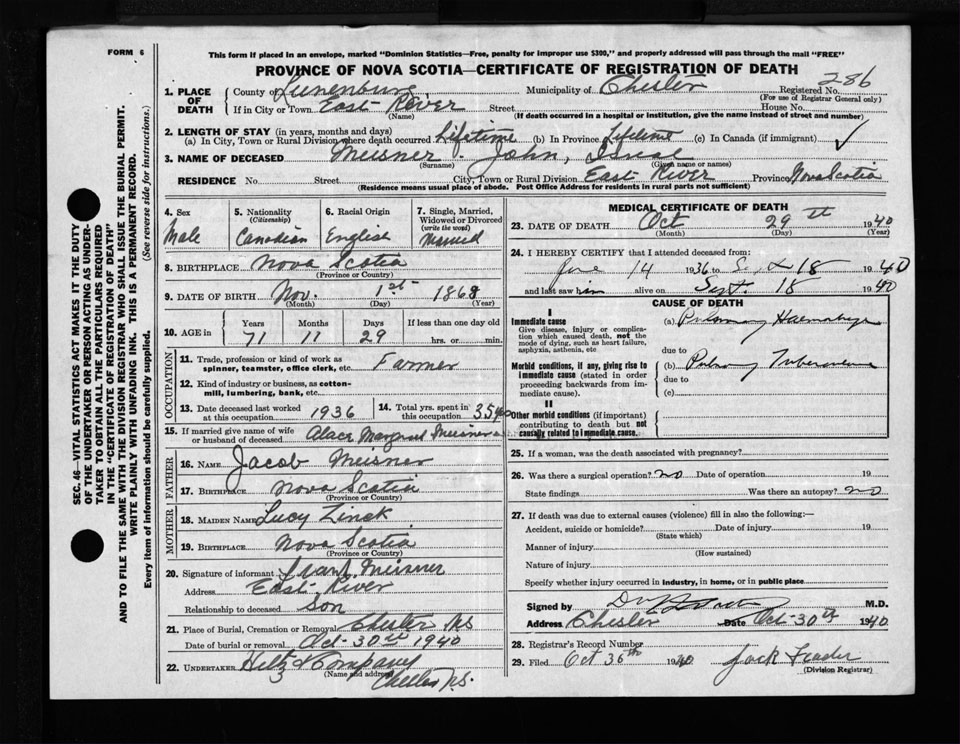 FORM 6
This form if placed in an envelope, marked "Dominion Statistics—Free, penalty for improper use $300," and properly addressed will pass through the mail "FREE"
PROVINCE OF NOVA SCOTIA—CERTIFICATE OF REGISTRATION OF DEATH
286
1. PLACE OF DEATH County of Lunenburg Municipality of Chester Registered No.
(For use of Registrar General only)
If in City or Town East River Street House No.
(Name) (If death occurred in a hospital or institution, give the name instead of street and number)
2. LENGTH OF STAY (in years, months and days)
(a) In City, Town or Rural Division where death occurred Lifetime (b) In Province Lifetime (c) In Canada (if immigrant)
3. NAME OF DECEASED Meisner John, Isreal
(Surname) (Given name or names)
RESIDENCE No. Street City, Town or Rural Division East River Province Nova Scotia
(Residence means usual place of abode. Post Office Address for residents in rural parts not sufficient)
4. Sex Male
5. Nationality (Citizenship) Canadian
6. Racial Origin English
7. Single, Married, Widowed or Divorced (write the word) Married
8. BIRTHPLACE Nova Scotia
(Province or Country)
9. DATE OF BIRTH Nov. 1st 1868
(Month) (Day) (Year)
10. AGE in Years Months Days If less than one day
71 11 29 hrs. or min.
OCCUPATION
11. Trade, profession or kind of work as spinner, teamster, office clerk, etc. Farmer
12. Kind of industry or business, as cotton-mill, lumbering, bank, etc.
13. Date deceased last worked at this occupation 1936
14. Total yrs. spent in this occupation 35
15. If married give name of wife or husband of deceased Margret Meisner
FATHER
16. NAME Jacob Meisner
17. BIRTHPLACE Nova Scotia
(Province or Country)
MOTHER
18. MAIDEN NAME Lucy Zinck
19. BIRTHPLACE Nova Scotia
(Province or Country)
20. Signature of informant Meisner
Address East River
Relationship to deceased Son
21. Place of Burial, Cremation or Removal Chester NS
Date of burial or removal Oct-30th 1940
22. UNDERTAKER Hiltz & Company
(Name and address) Chester N.S.
MEDICAL CERTIFICATE OF DEATH
23. DATE OF DEATH Oct 29th 1940
(Month) (Day) (Year)
24. I HEREBY CERTIFY that I attended deceased from:
14 1936 to 18 1940
and last saw him alive on Sept. 18 1940
CAUSE OF DEATH
I
Immediate cause
Give disease, injury or complication which caused death, not the mode of dying, such as heart failure, asphyxia, asthenia, etc.
(a)
due to
Morbid conditions, if any, giving rise to immediate cause (stated in order proceeding backwards from immediate cause).
(b)
due to
(c)
II
Other morbid conditions (if important) contributing to death but not causally related to immediate cause.
25. If a woman, was the death associated with pregnancy?
26. Was there a surgical operation? no Date of operation 19
State findings Was there an autopsy? no
27. If death was due to external causes (violence) fill in also the following:—
Accident, suicide or homicide? Date of injury 19
(State which)
Manner of injury
(How sustained)
Nature of injury
Specify whether injury occurred in industry, in home, or in public place
Signed by M.D.
Address Chester Date Oct-30th 1940
28. Registrar's Record Number
29. Filed Oct 1940 Jack
(Division Registrar)
SEC. 46—VITAL STATISTICS ACT MAKES IT THE DUTY
OF THE UNDERTAKER OR PERSON ACTING AS UNDER-
TAKER TO OBTAIN ALL THE PARTICULARS REQUIRED
IN THE "CERTIFICATE OF REGISTRATION OF DEATH"
AND TO FILE THE SAME WITH THE DIVISION REGISTRAR WHO SHALL ISSUE THE BURIAL PERMIT.
WRITE PLAINLY WITH UNFADING INK. THIS IS A PERMANENT RECORD.
Every item of information should be carefully supplied. (See reverse side for instructions.)